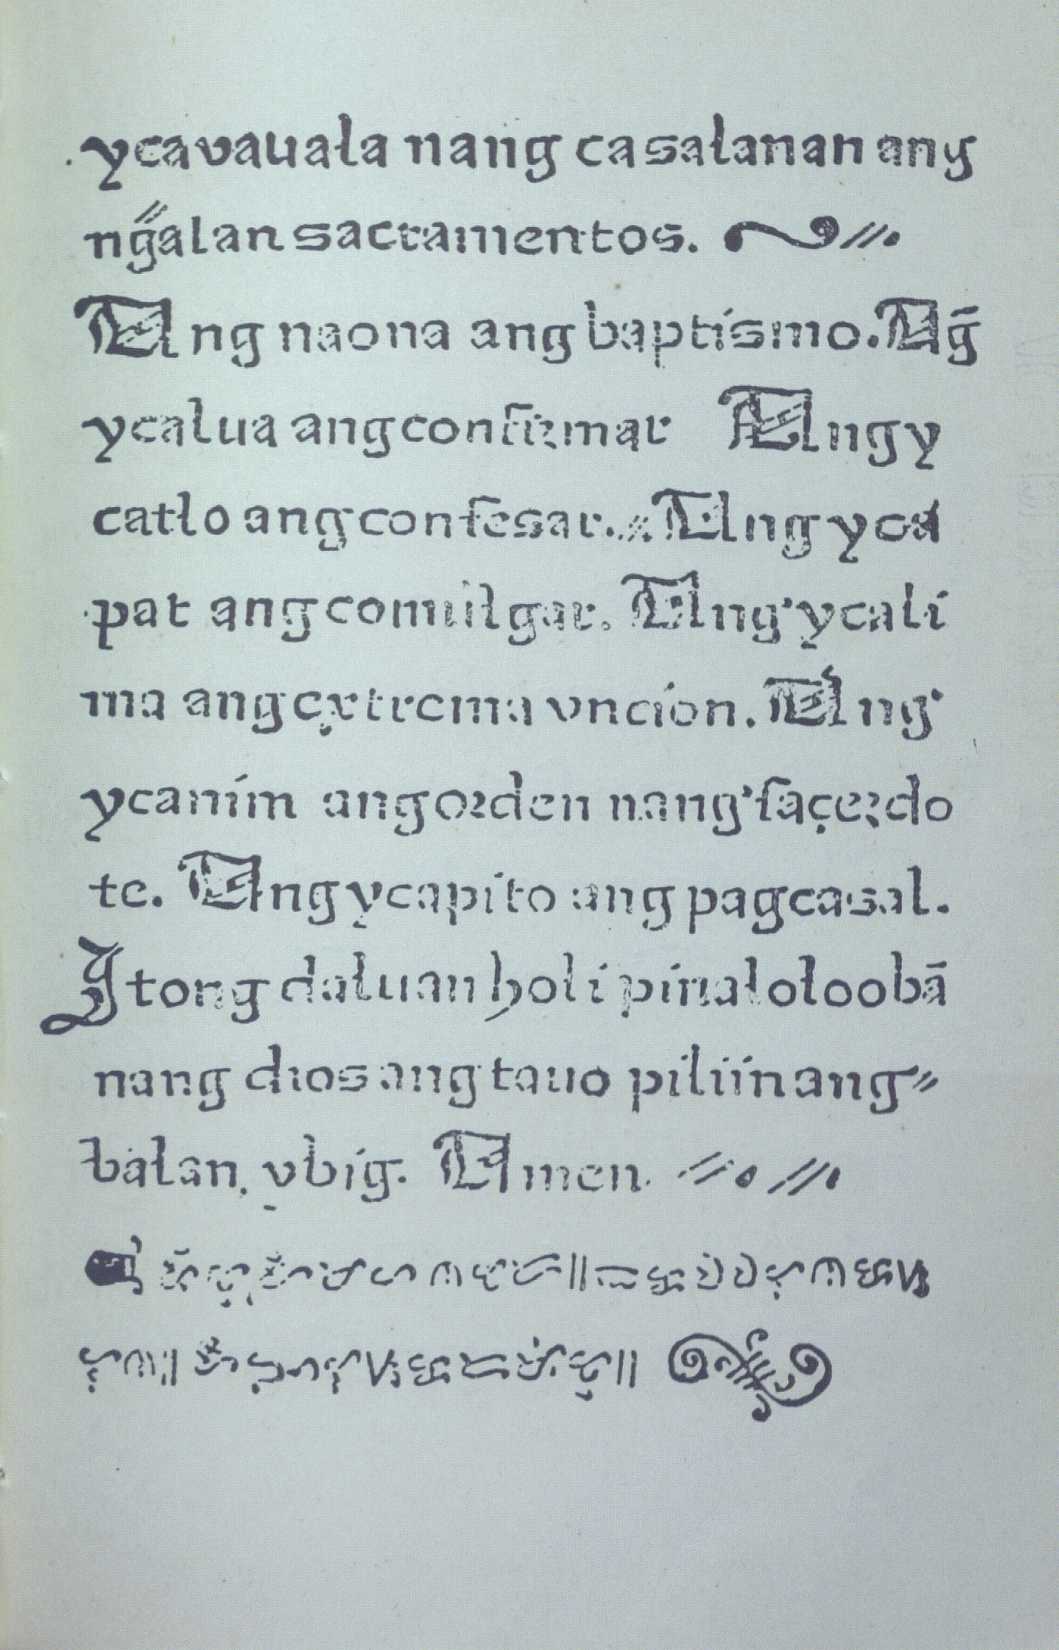 ycavauala nang casalanan ang
ng̃alan sacramentos.
Ang naona ang baptismo. Ag̃
ycalua ang confirmar Ang y
catlo ang confesar. Ang yca
pat ang comulgar. Ang ycali
ma ang extrema vncion. Ang
ycanim ang orden nang saçerdo
te. Ang ycapito ang pagcasal.
Ytong daluan holi pinaloloobã
nang dios ang tauo piliin ang
balan, ybig. Amen.